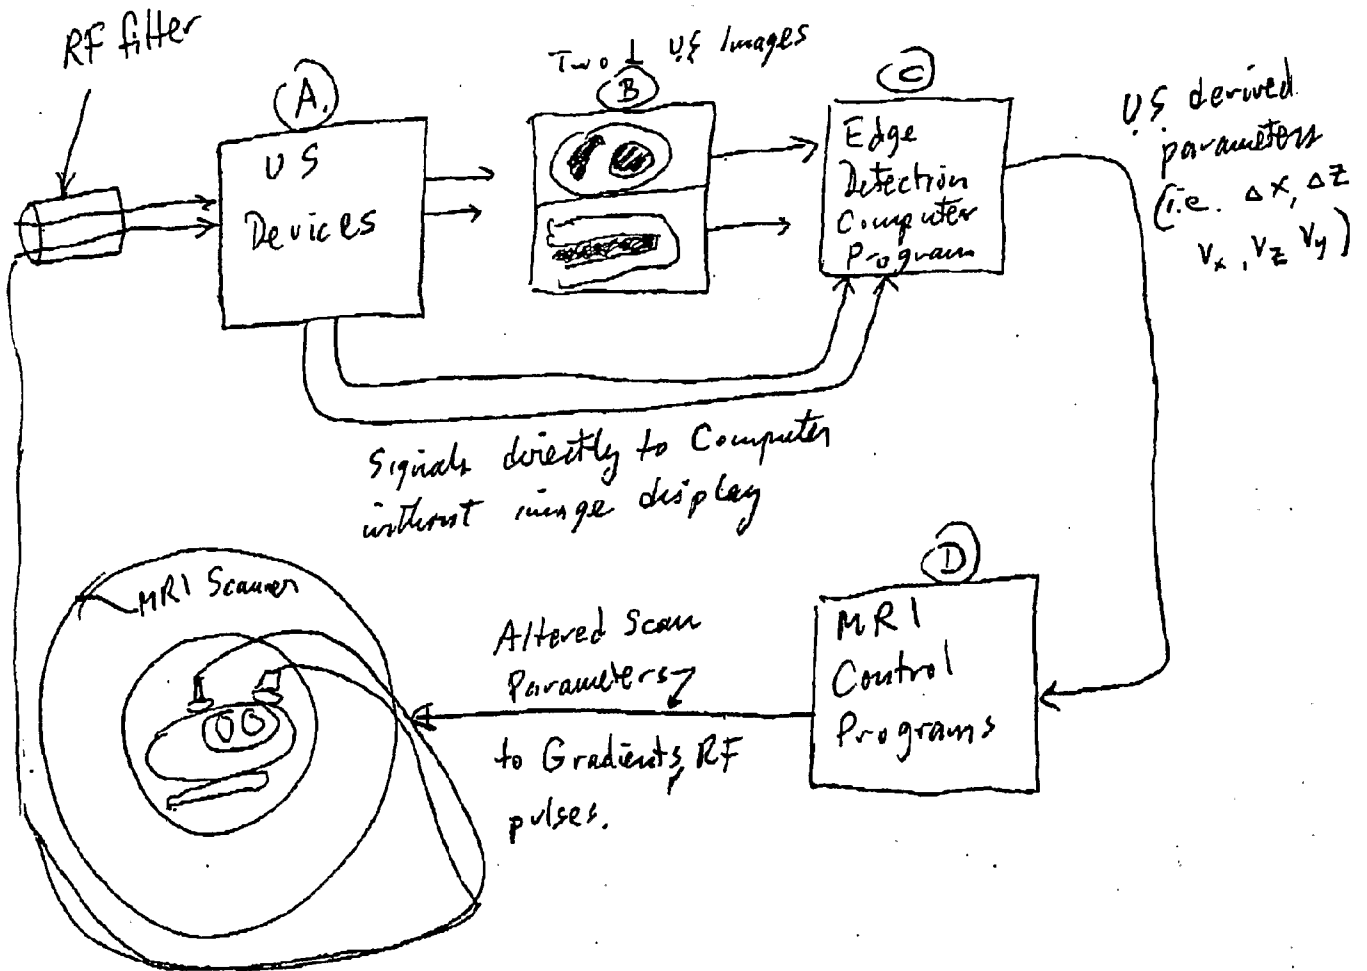 RF filter
A.
US
Devices
Two US Images
B
C
Edge
Detection
Computer
Program
US derived
parameters
(i.e. Δx, Δz
Vx, Vz Vy)
Signals directly to Computer
without image display
MRI Scanner
Altered Scan
Parameters
to Gradients, RF
pulses.
D
MRI
Control
Programs